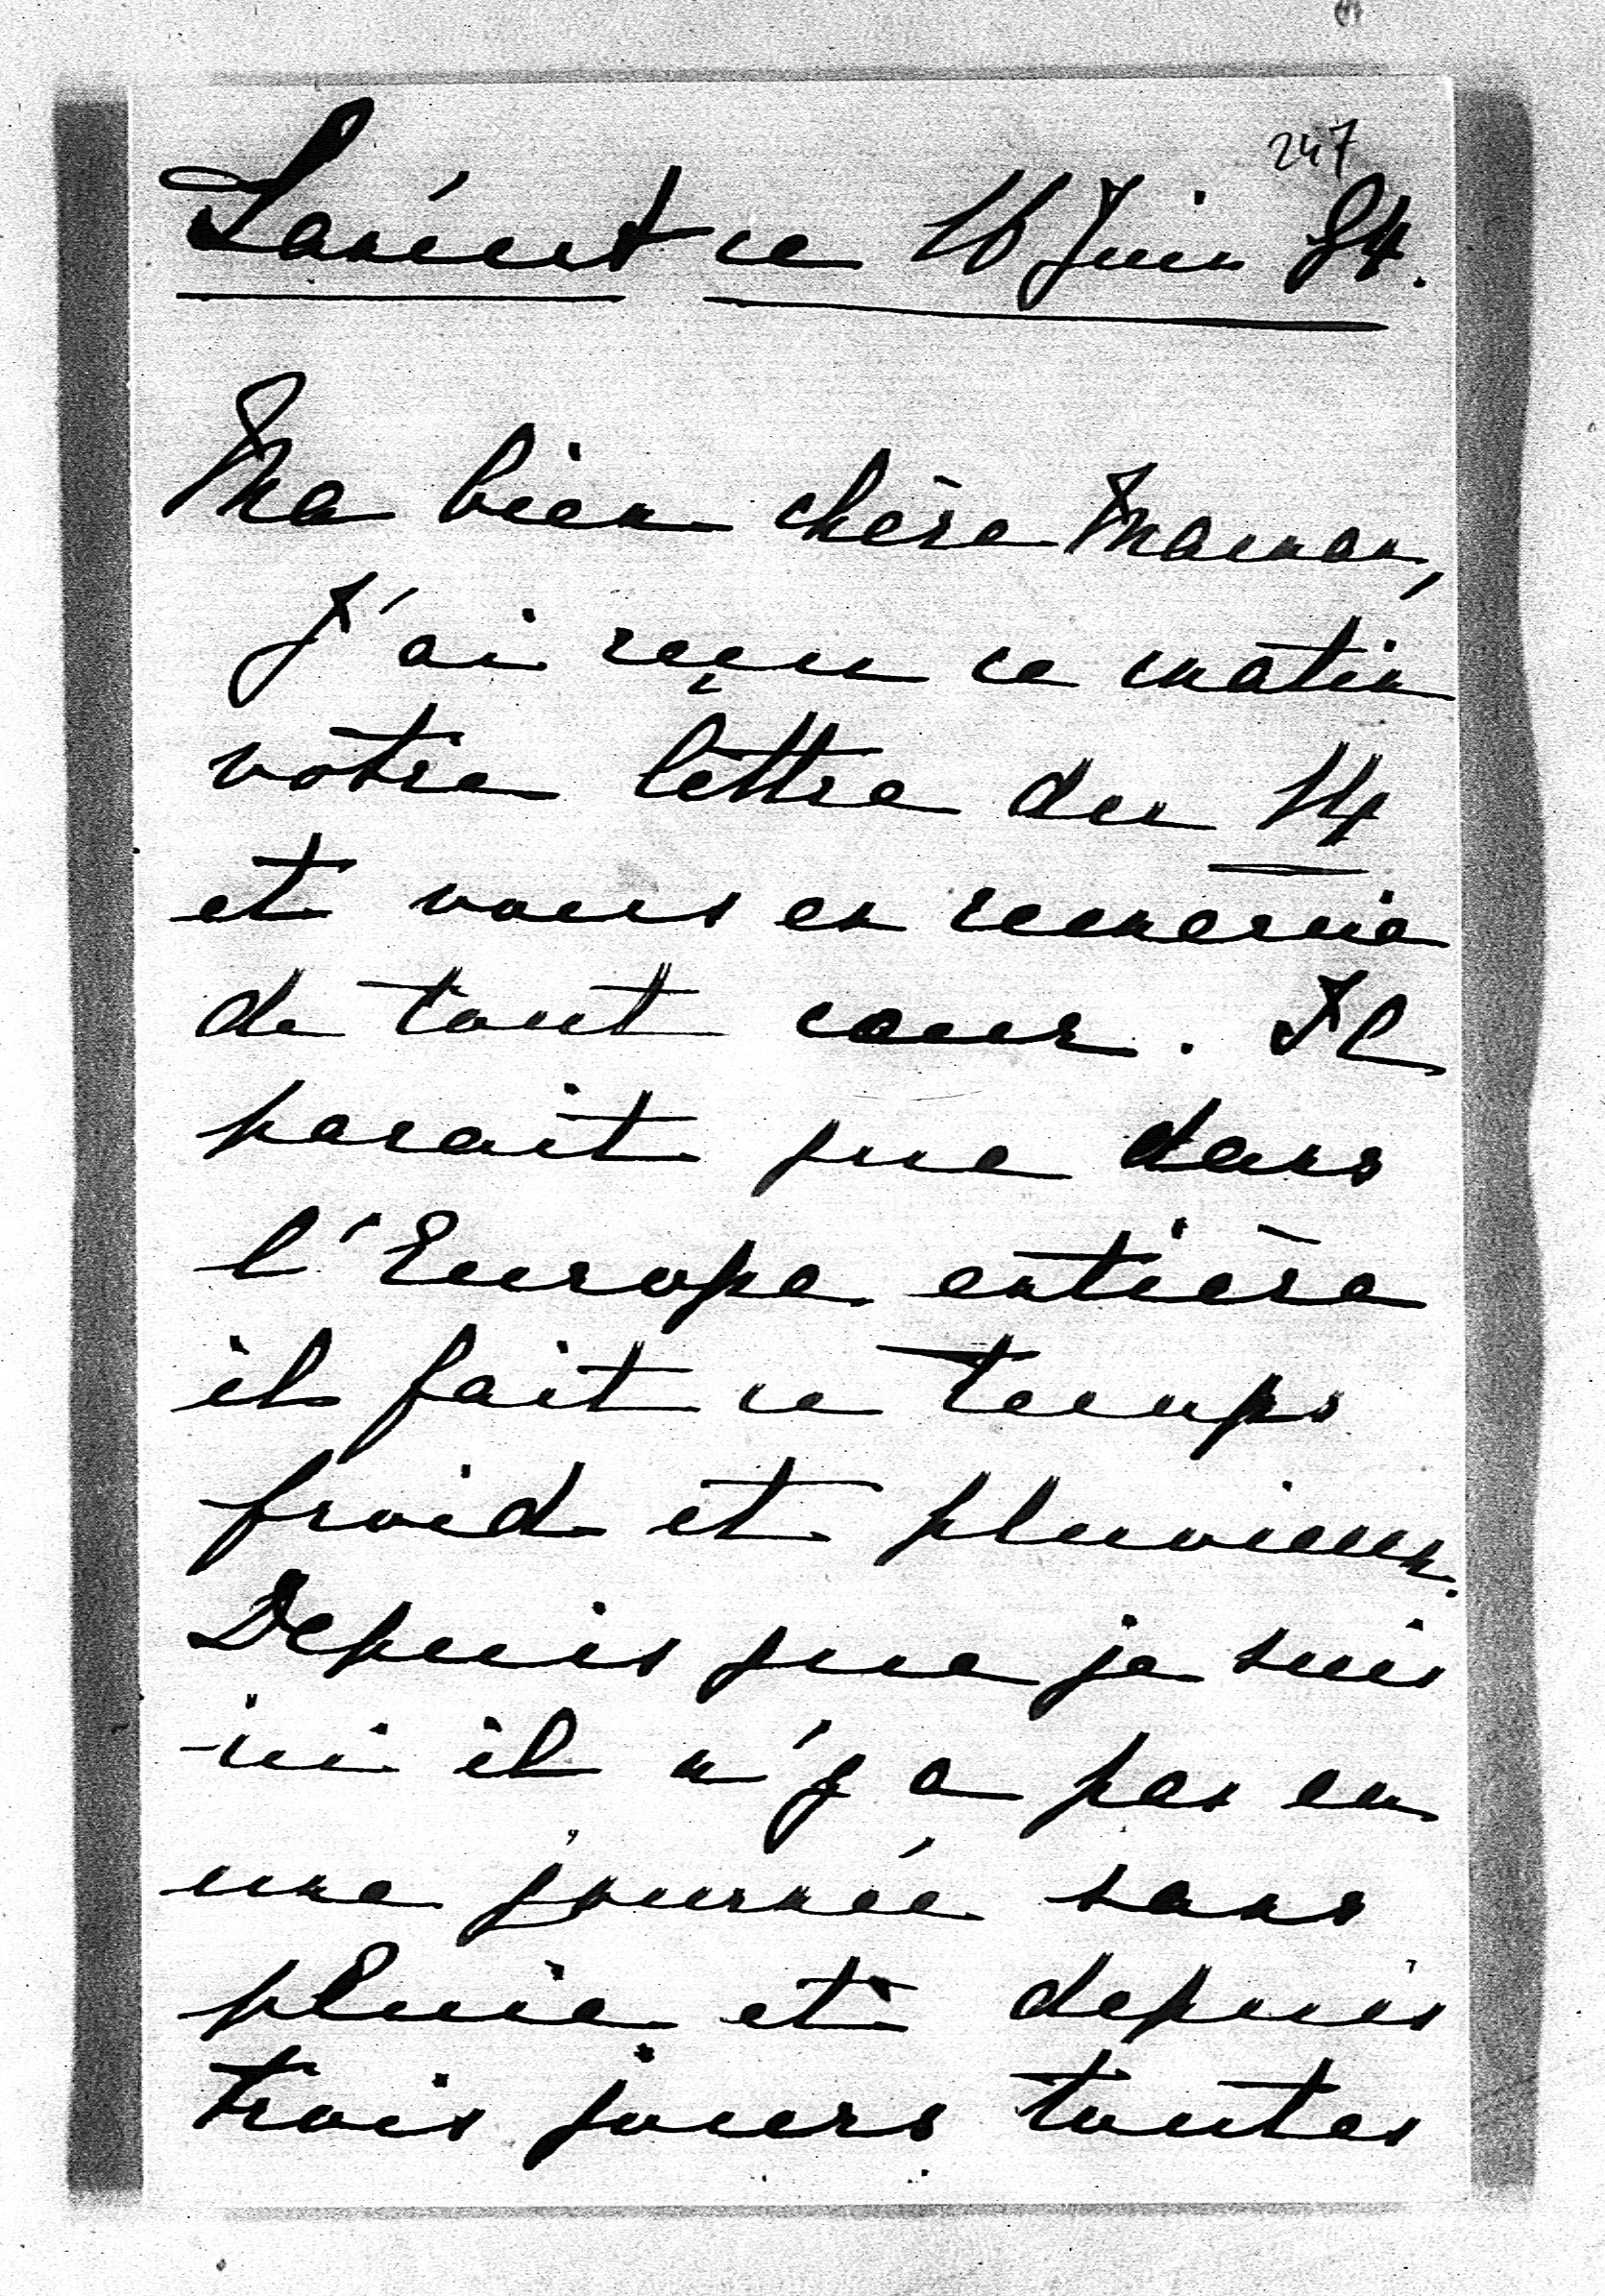 247
Lorient ce 16 Juin 84.
Ma bien chère Maman,
J'ai reçu ce matin
votre lettre du 14
et vous en remercie
de tout coeur. Il
parait que dans
l'Europe entière
il fait ce temps
froid et pluvieux.
Depuis que je suis
ici il n'y a pas eu
une journée sans
pluie et depuis
trois jours toutes